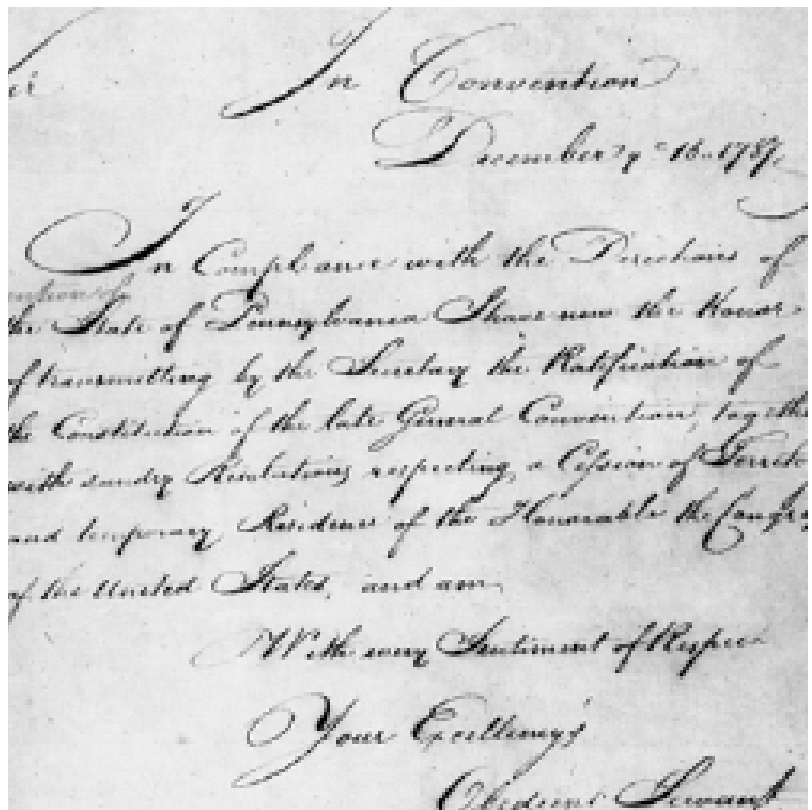 In Convention
December ye 15th 1787
In Compliance with the Directions of
the State of Pennsylvania I have now the Honor
of transmitting by the Secretary the Ratification of
the Constitution of the late General Convention, togethe
with sundry Resolutions respecting a Cession of Territo
and temporary Residence of the Honorable the Congre
of the United States, and am
With every Sentiment of Respec
Your Excellency's
Obedient Servant